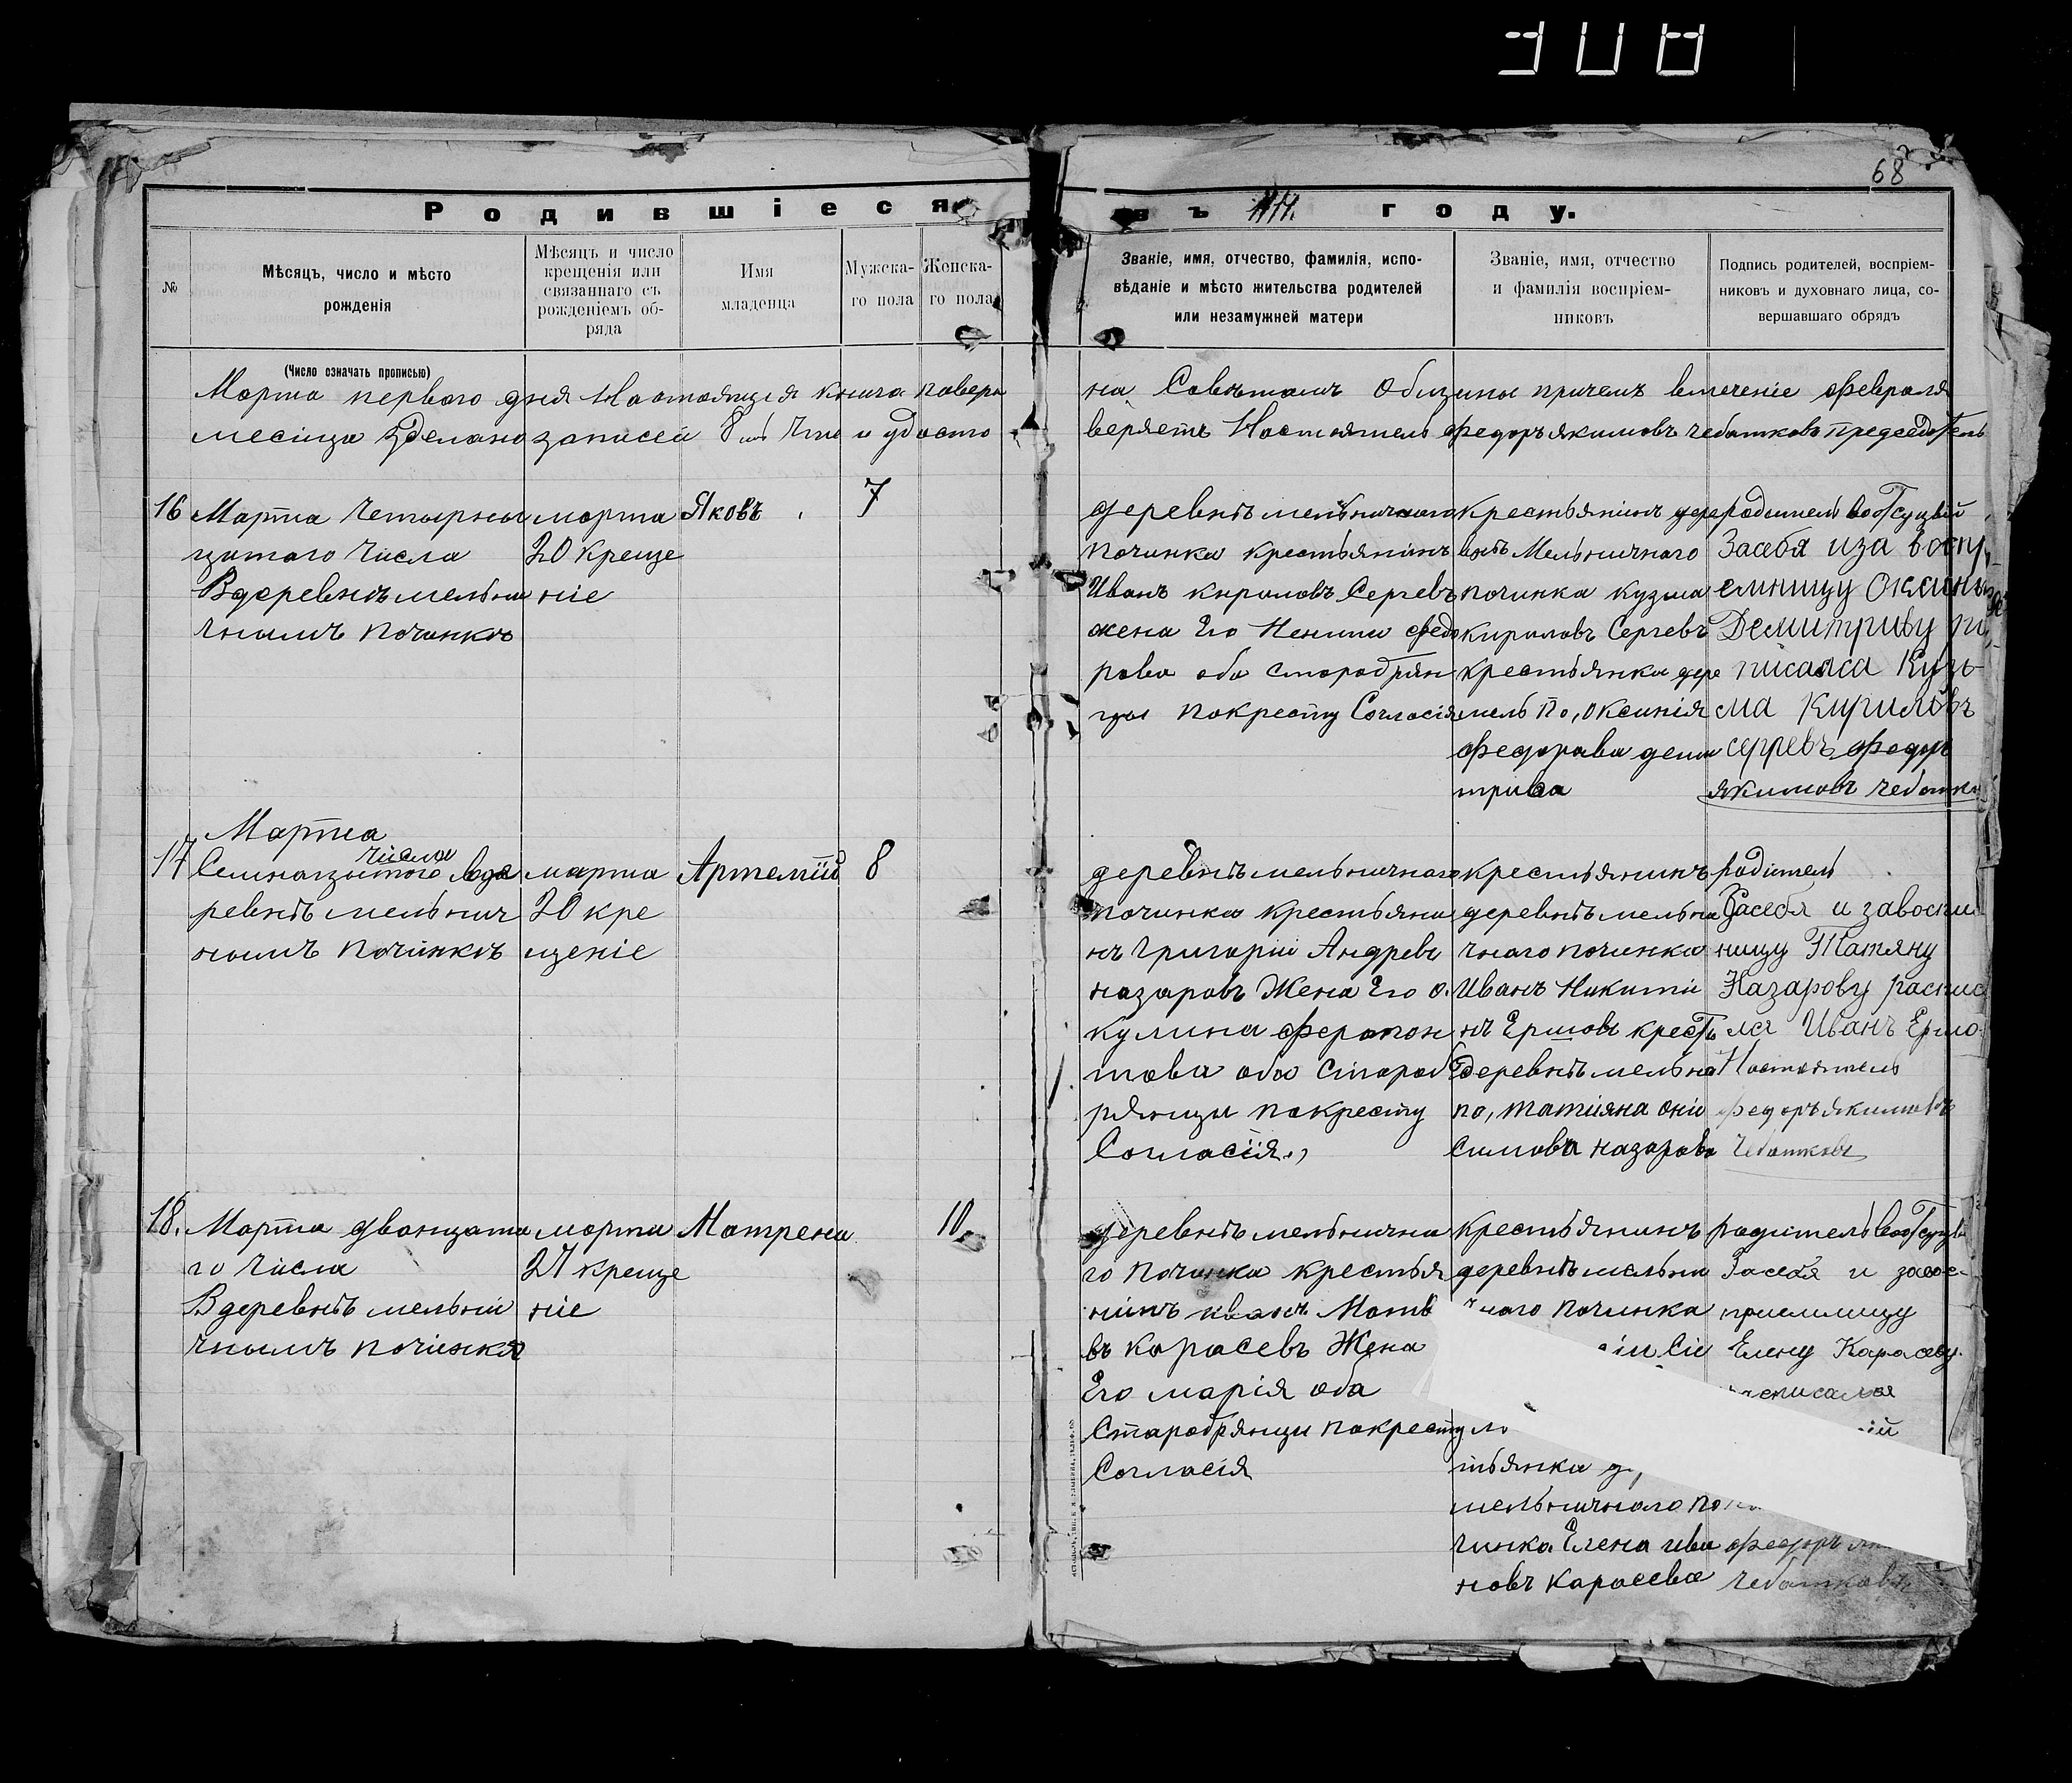 308
68
Родившіеся въ 1914. году.
№
Мѣсяцъ, число и мѣсто
рожденія
Мѣсяцъ и число
крещенія или
связаннаго съ
рожденіемъ об-
ряда
Имя
младенца
Мужска-
го пола
Женска-
го пола
Званіе, имя, отчество, фамилія, испо-
вѣданіе и мѣсто жительства родителей
или незамужней матери
Званіе, имя, отчество
и фамилія воспріем-
никовъ
Подпись родителей, воспріем-
никовъ и духовнаго лица, со-
вершавшаго обрядъ
(Число означать прописью)
Марта первого дня Настоящея книга поверя
на Советомъ Общины причемъ втечение февраля
месица зделано записей 8 мь
веряетъ Настоятель Федоръ якимовъ чебатковъ председатель
16
Марта четырны
цатаго Числа
Вдеревнѣ мельни
чнымъ починкѣ
марта
20 креще
ніе
Яковъ
7
деревнѣ мельничнаго
починка крестьянинъ
Иванъ кириловъ Сергевъ
жена Его федо
рова оба старобрян
цы покресту Согласія
крестьянинъ дере
внѣ Мельничного
починка кузма
кириловъ Сергевъ
крестьянка дере
мель по, оксинія
федорава дем
трива
родитель вотсуцвій
Засебя иза воспр
емницу Оксинь
Демитриву
писался Кузь
ма Кириловъ
сергевъ федоръ
якимовъ чебатко
17
Марта
Семнацатого числа вде
ревнѣ мельнич
нымъ починкѣ
марта
20 кре
щеніе
Артемій
8
деревнѣ мельничнаго
починка крестьяни
нъ Григорій Андревъ
назаровъ Жена Его о.
кулина ферапон
това оба староб
рянцы покресту
Согласія.,
крестьянинъ
деревнѣ мельни
чнаго починка
Иванъ Никити
нъ Ершовъ кресть
деревнѣ мельни
по, татияна они
симова назарова
родитель
Засебя и завоспи
ницу Татяну
Назарову распис
лся Иванъ Ершо
Настоятель
федоръ якимовъ
Чебатковъ
18.
Марта дванцата
го числа
Вдеревнѣ мельни
чнымъ починкя
марта
27 креще
ніе
Матрена
10
деревнѣ мельнична
го починка крестья
нинъ иванъ Матв
въ карасевъ Жена
Его марія оба
Старобрянцы покресту
Согласія
крестьянинъ
деревнѣ мельни
чнаго починка
тьянка д,
мельничнаго по
чинка Елена ива
новъ карасева
родитель вотсуцви
Засебя и завос-
приемницу
Елену Карасеву.
расписался
федоръ
чебатковъ